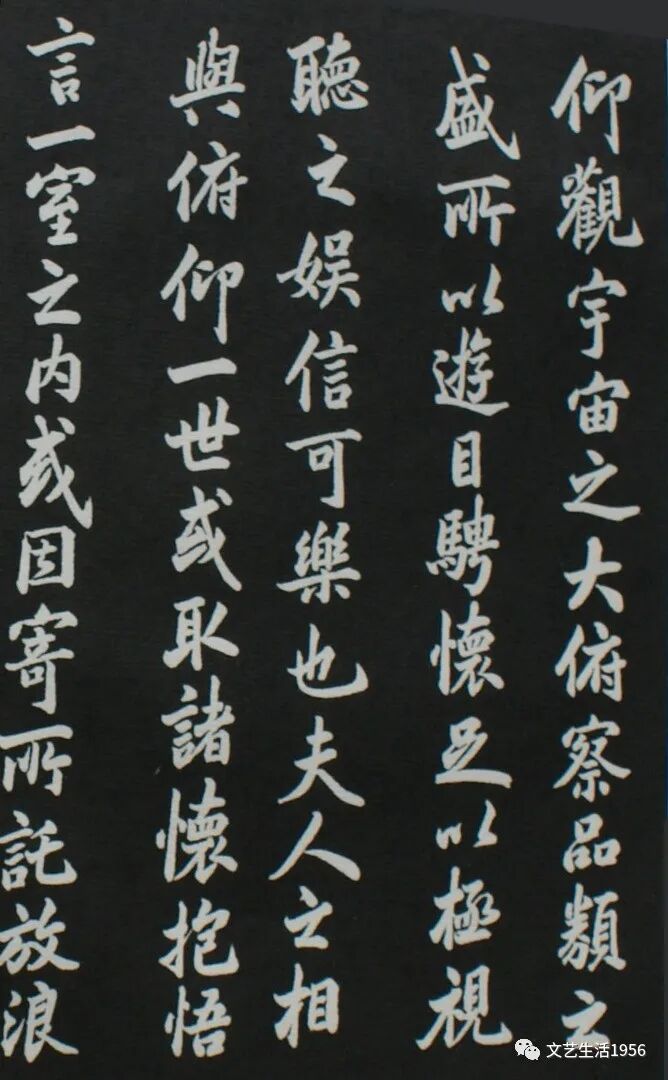 仰觀宇宙之大俯察品類之
盛所以遊目騁懷足以極視
聽之娱信可樂也夫人之相
與俯仰一世或取諸懷抱悟
言一室之内或因寄所託放浪
文艺生活1956